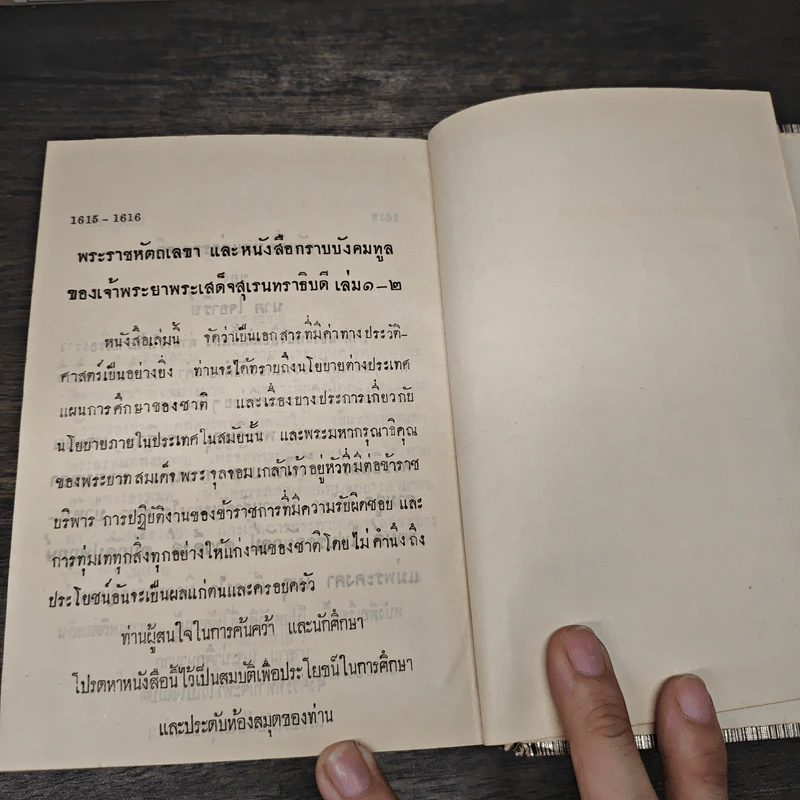 1615 - 1616
พระราชหัตถเลขา และหนังสือกราบบังคมทูล
ของเจ้าพระยาพระเสด็จสุเรนทราธิบดี เล่ม๑-๒
หนังสือเล่มนี้ จัดว่าเป็นเอกสารที่มีค่าทางประวัติ-
ศาสตร์เป็นอย่างยิ่ง ท่านจะได้ทราบถึงนโยบายต่างประเทศ
แผนการศึกษาของชาติ และเรื่องบางประการเกี่ยวกับ
นโยบายภายในประเทศในสมัยนั้น และพระมหากรุณาธิคุณ
ของพระบาทสมเด็จพระจุลจอมเกล้าเจ้าอยู่หัวที่มีต่อข้าราช
บริพาร การปฏิบัติงานของข้าราชการที่มีความรับผิดชอบ และ
การทุ่มเททุกสิ่งทุกอย่างให้แก่งานของชาติโดยไม่คำนึงถึง
ประโยชน์อันจะเป็นผลแก่ตนและครอบครัว
ท่านผู้สนใจในการค้นคว้า และนักศึกษา
โปรดหาหนังสือนี้ไว้เป็นสมบัติเพื่อประโยชน์ในการศึกษา
และประดับห้องสมุดของท่าน